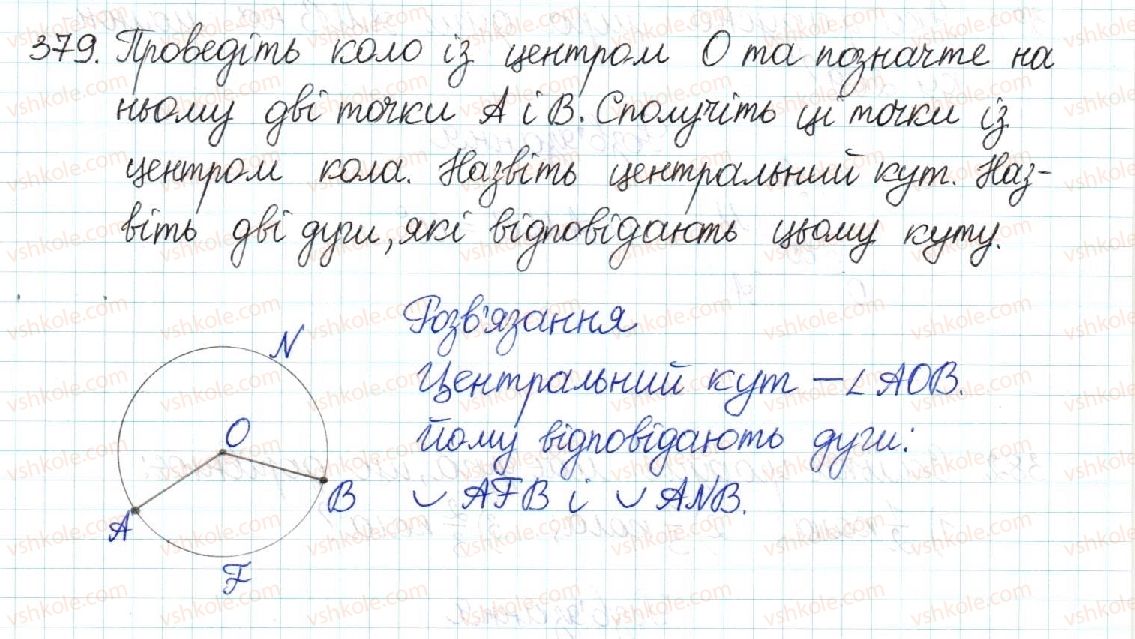 379. Проведіть коло із центром О та позначте на
ньому дві точки А і В. Сполучіть ці точки із
центром кола. Назвіть центральний кут. Наз-
віть дві дуги, які відповідають цьому куту.
Розв'язання
Центральний кут – ∠AOB.
Йому відповідають дуги:
◡ AFB і ◡ ANB.
N
O
B
A
F
vshkole.com